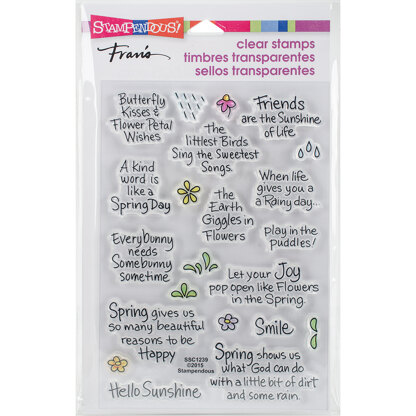 STAMPENDOUS!
Fran's
clear stamps
timbres transparentes
sellos transparentes
Butterfly
Kisses &
Flower Petal
Wishes
Friends
are the Sunshine
of Life
The
littlest Birds
Sing the Sweetest
Songs.
A kind
word is
like a
Spring Day
When life
gives you a
a Rainy day...
The
Earth
Giggles in
Flowers
play in the
puddles!
Every bunny
needs
Somebunny
sometime
Let your Joy
pop open like Flowers
in the Spring.
Spring gives us
so many beautiful
reasons to be
Happy
Smile
SSC1239
©2015
Stampendous
Spring shows us
what God can do
with a little bit of dirt
and some rain.
Hello Sunshine